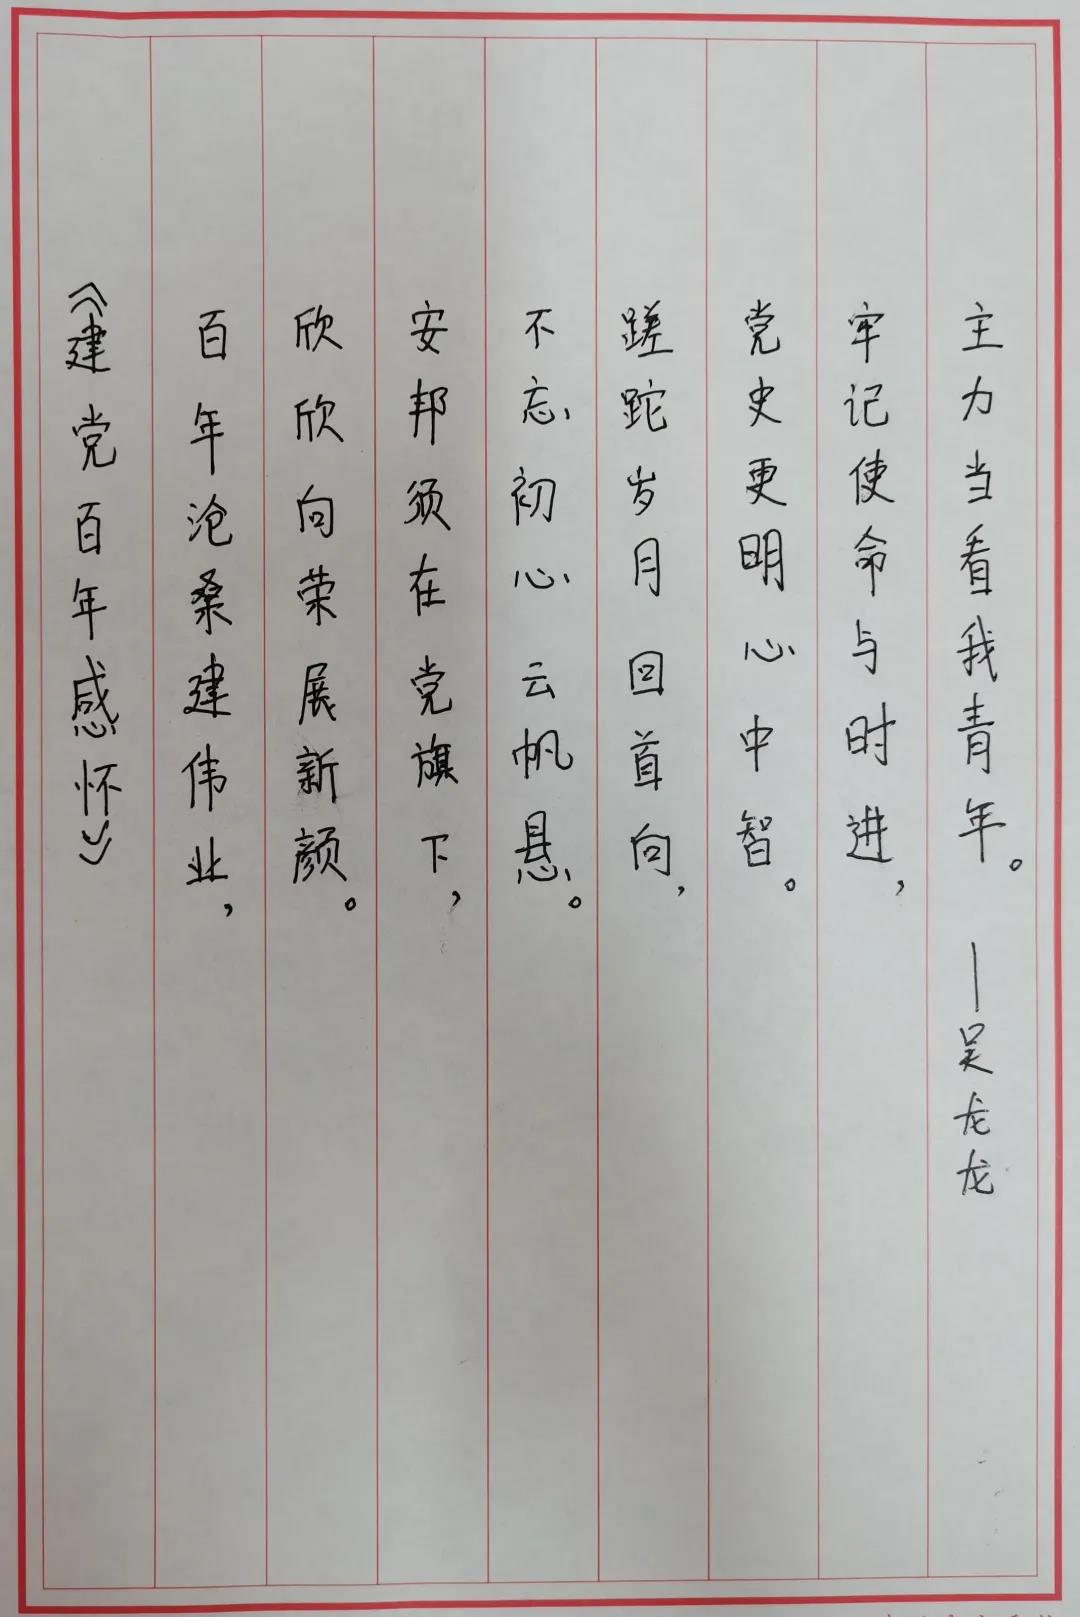 《建党百年感怀》
百年沧桑建伟业，
欣欣向荣展新颜。
安邦须在党旗下，
不忘初心云帆悬。
蹉跎岁月回首向，
党史更明心中智。
牢记使命与时进，
主力当看我青年。
—吴龙龙